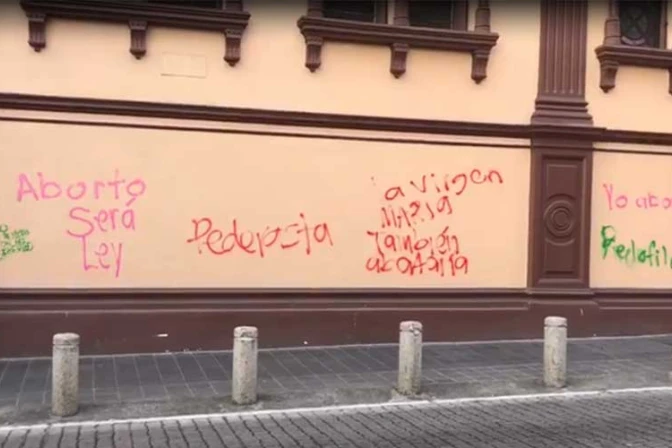 Aborto
Será
Ley
Pederasta
a virgen
María
También
abortaría
Yo abo
Pedofil